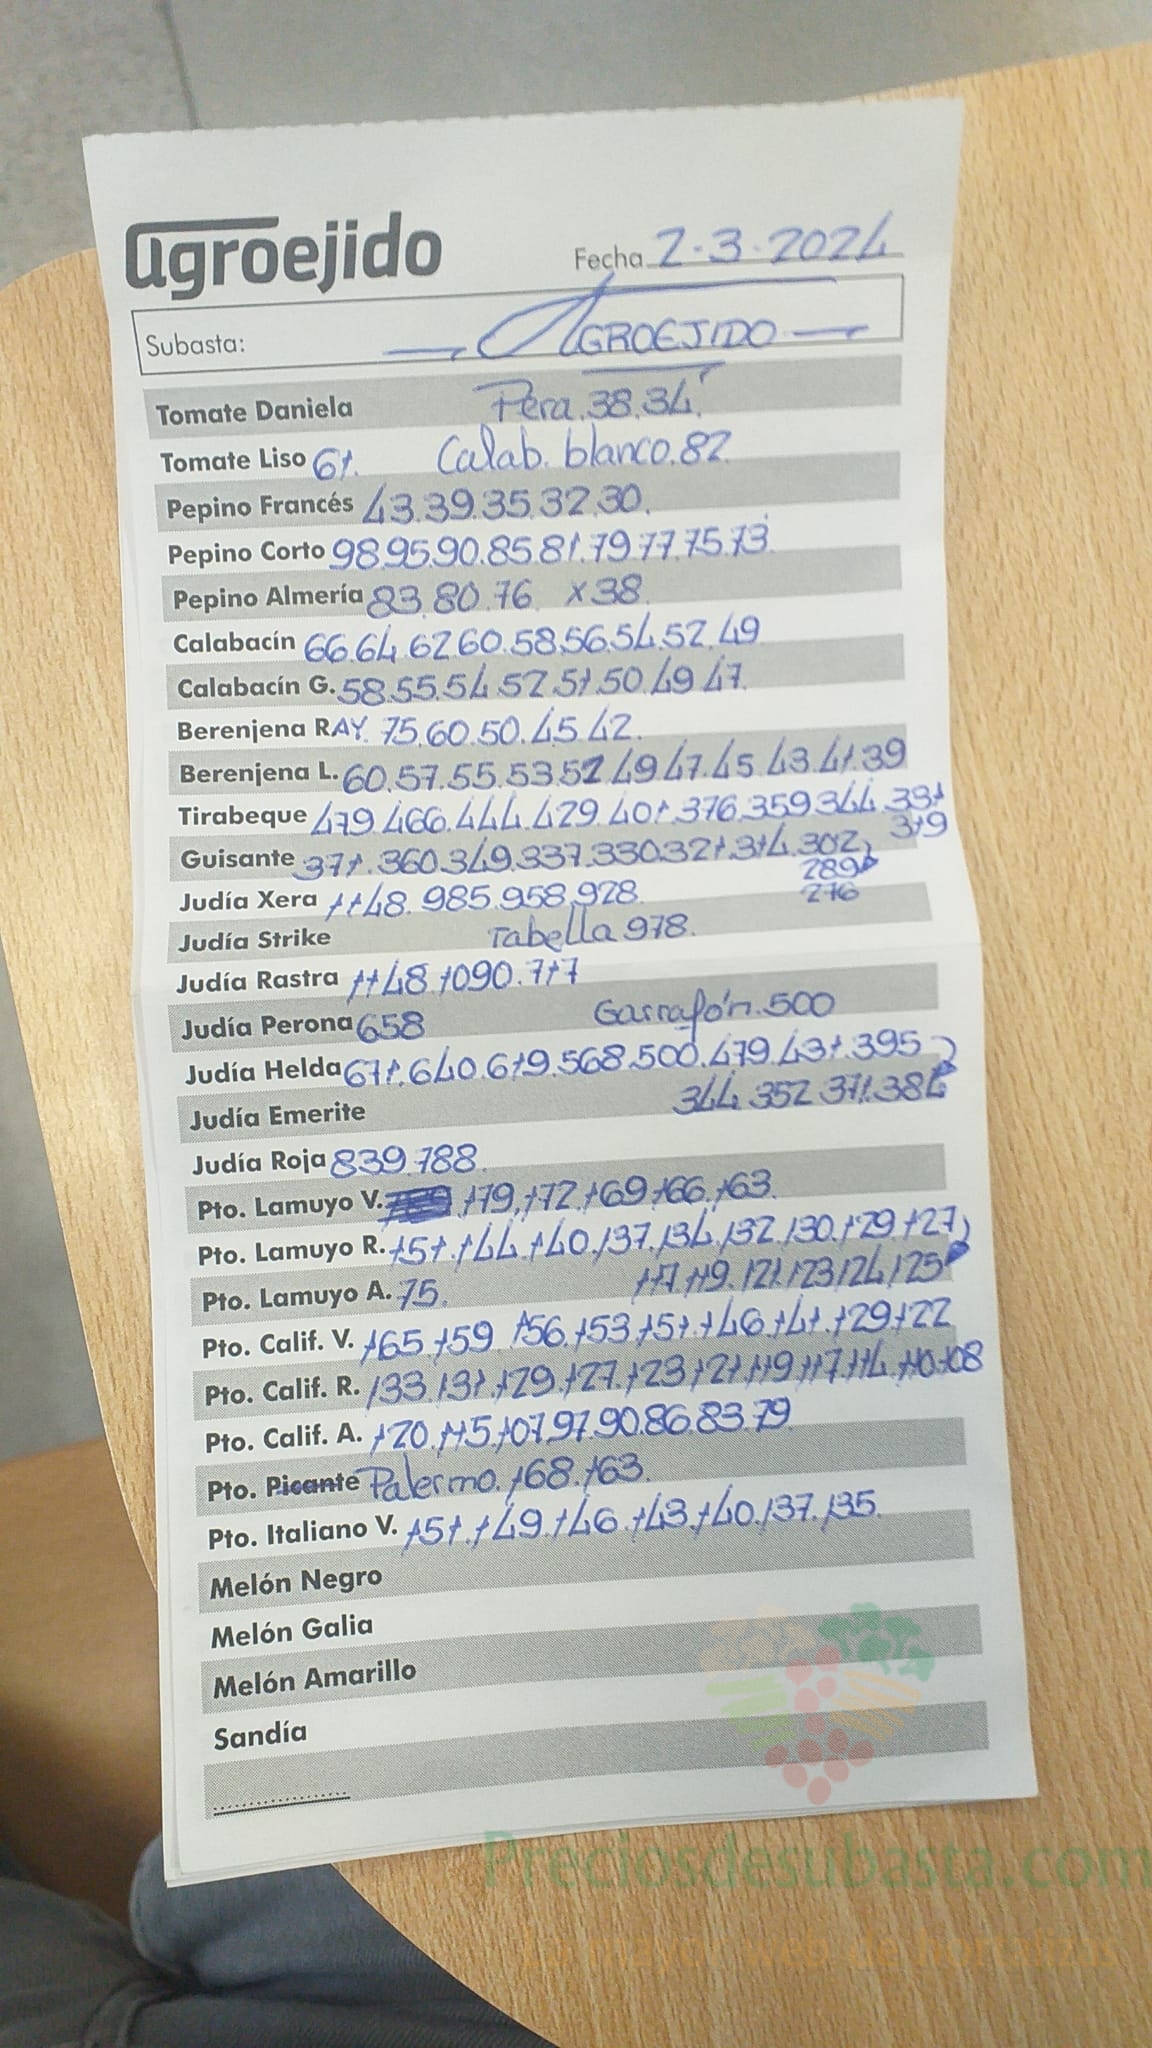 agroejido
Fecha 2-3-2024
Subasta: AGROEJIDO
Tomate Daniela Pera.38.34
Tomate Liso 61. Calab. blanco.82
Pepino Francés 43.39.35.32.30.
Pepino Corto 98.95.90.85.81.79.77.75.73
Pepino Almería 83.80.76 x38
Calabacín 66.64.62.60.58.56.54.52.49
Calabacín G. 58.55.54.52.51.50.49.47.
Berenjena RAY. 75.60.50.45.42.
Berenjena L. 60.57.55.53.52.49.47.45.43.41.39
Tirabeque 479.466.444.429.401.376.359.344.331
319
Guisante 371.360.349.337.330.321.314.302
289
276
Judía Xera 1148.985.958.928.
Judía Strike Tabella 978.
Judía Rastra 1148.1090.717
Judía Perona 658 Garrafón.500
Judía Helda 671.640.619.568.500.479.431.395
344.352.371.384
Judía Emerite
Judía Roja 839.788.
Pto. Lamuyo V. 179.172.169.166.163.
Pto. Lamuyo R. 151.144.140.137.134.132.130.129.127
117.119.121.123.124.125
Pto. Lamuyo A. 75.
Pto. Calif. V. 165.159.156.153.151.146.141.129.122
Pto. Calif. R. 133.131.129.127.123.121.119.117.114.110.108
Pto. Calif. A. 120.115.107.97.90.86.83.79
Pto. Picante Palermo.168.163.
Pto. Italiano V. 151.149.146.143.140.137.135.
Melón Negro
Melón Galia
Melón Amarillo
Sandía
Preciosdesubasta.com
La mayor web de hortalizas